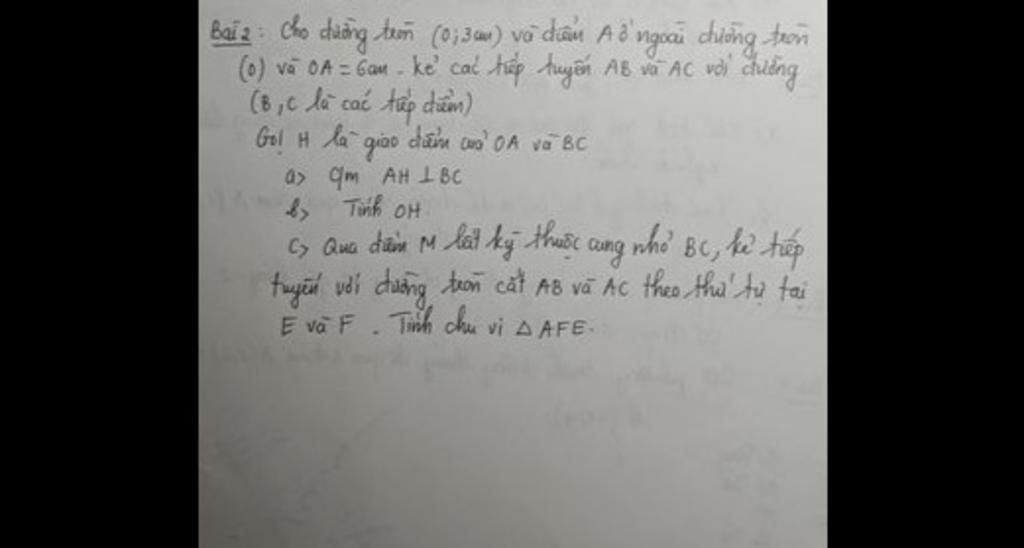 Bài 2: Cho đường tròn (O; 3cm) và điểm A ở ngoài đường tròn
(O) và OA = 6cm. Kẻ các tiếp tuyến AB và AC với đường
(B, C là các tiếp điểm)
Gọi H là giao điểm của OA và BC
a> C/m AH ⊥ BC
b> Tính OH.
C> Qua điểm M bất kỳ thuộc cung nhỏ BC, kẻ tiếp
tuyến với đường tròn cắt AB và AC theo thứ tự tại
E và F. Tính chu vi △ AFE.